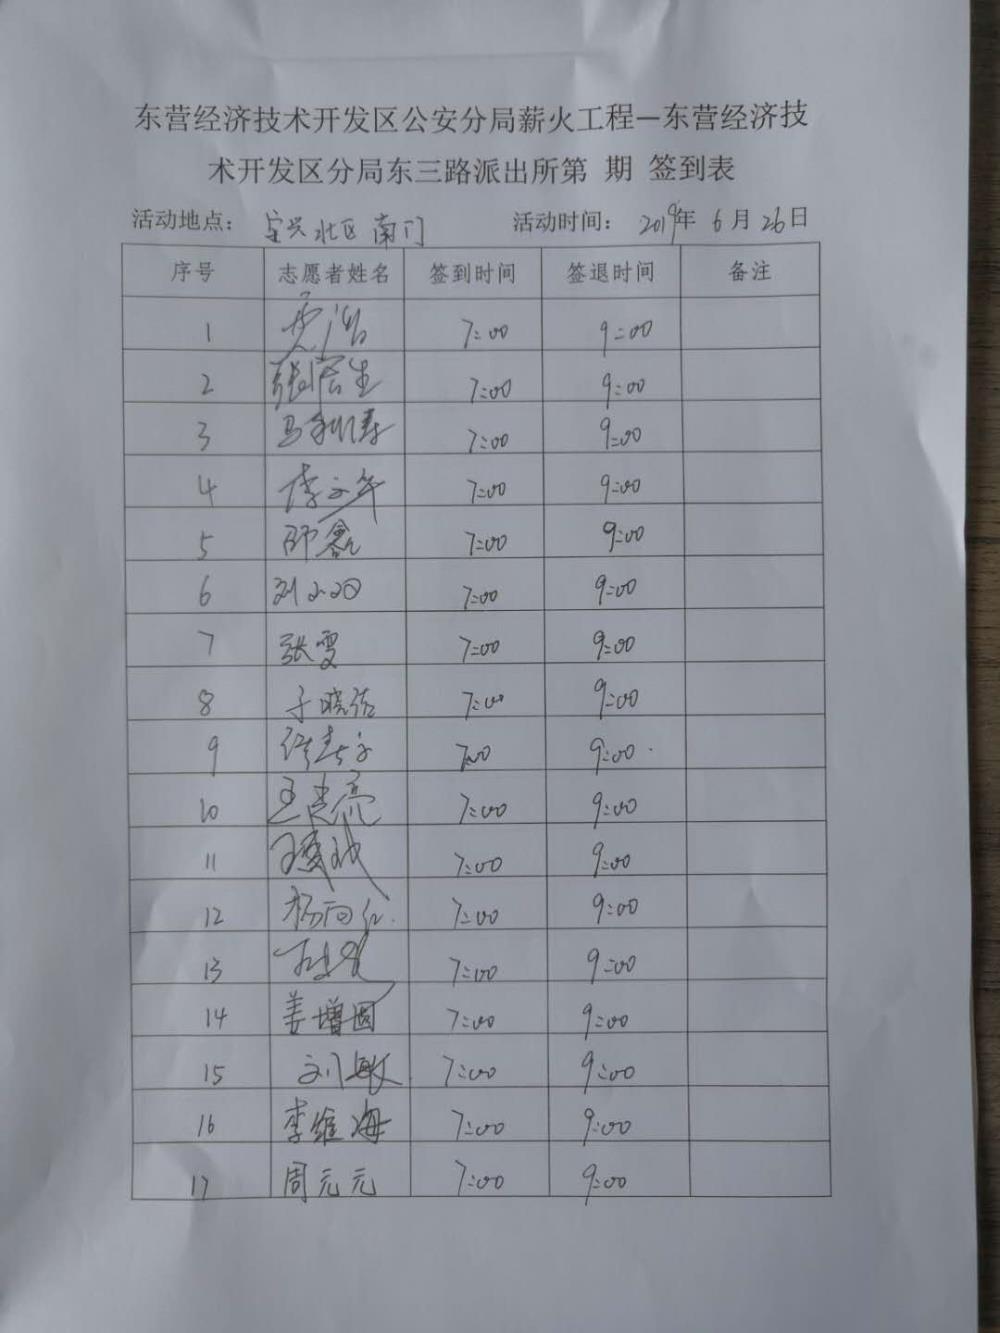 东营经济技术开发区公安分局薪火工程—东营经济技
术开发区分局东三路派出所第 期 签到表
活动地点： 宝兴北区南门 活动时间： 2019年 6月26日
序号 志愿者姓名 签到时间 签退时间 备注
1 7:00 9:00
2 7:00 9:00
3 7:00 9:00
4 李文 7:00 9:00
5 7:00 9:00
6 刘 7:00 9:00
7 张雯 7:00 9:00
8 7:00 9:00
9 7:00 9:00
10 亮 7:00 9:00
11 7:00 9:00
12 杨 7:00 9:00
13 7:00 9:00
14 姜增国 7:00 9:00
15 刘敏 7:00 9:00
16 李维海 7:00 9:00
17 周元元 7:00 9:00